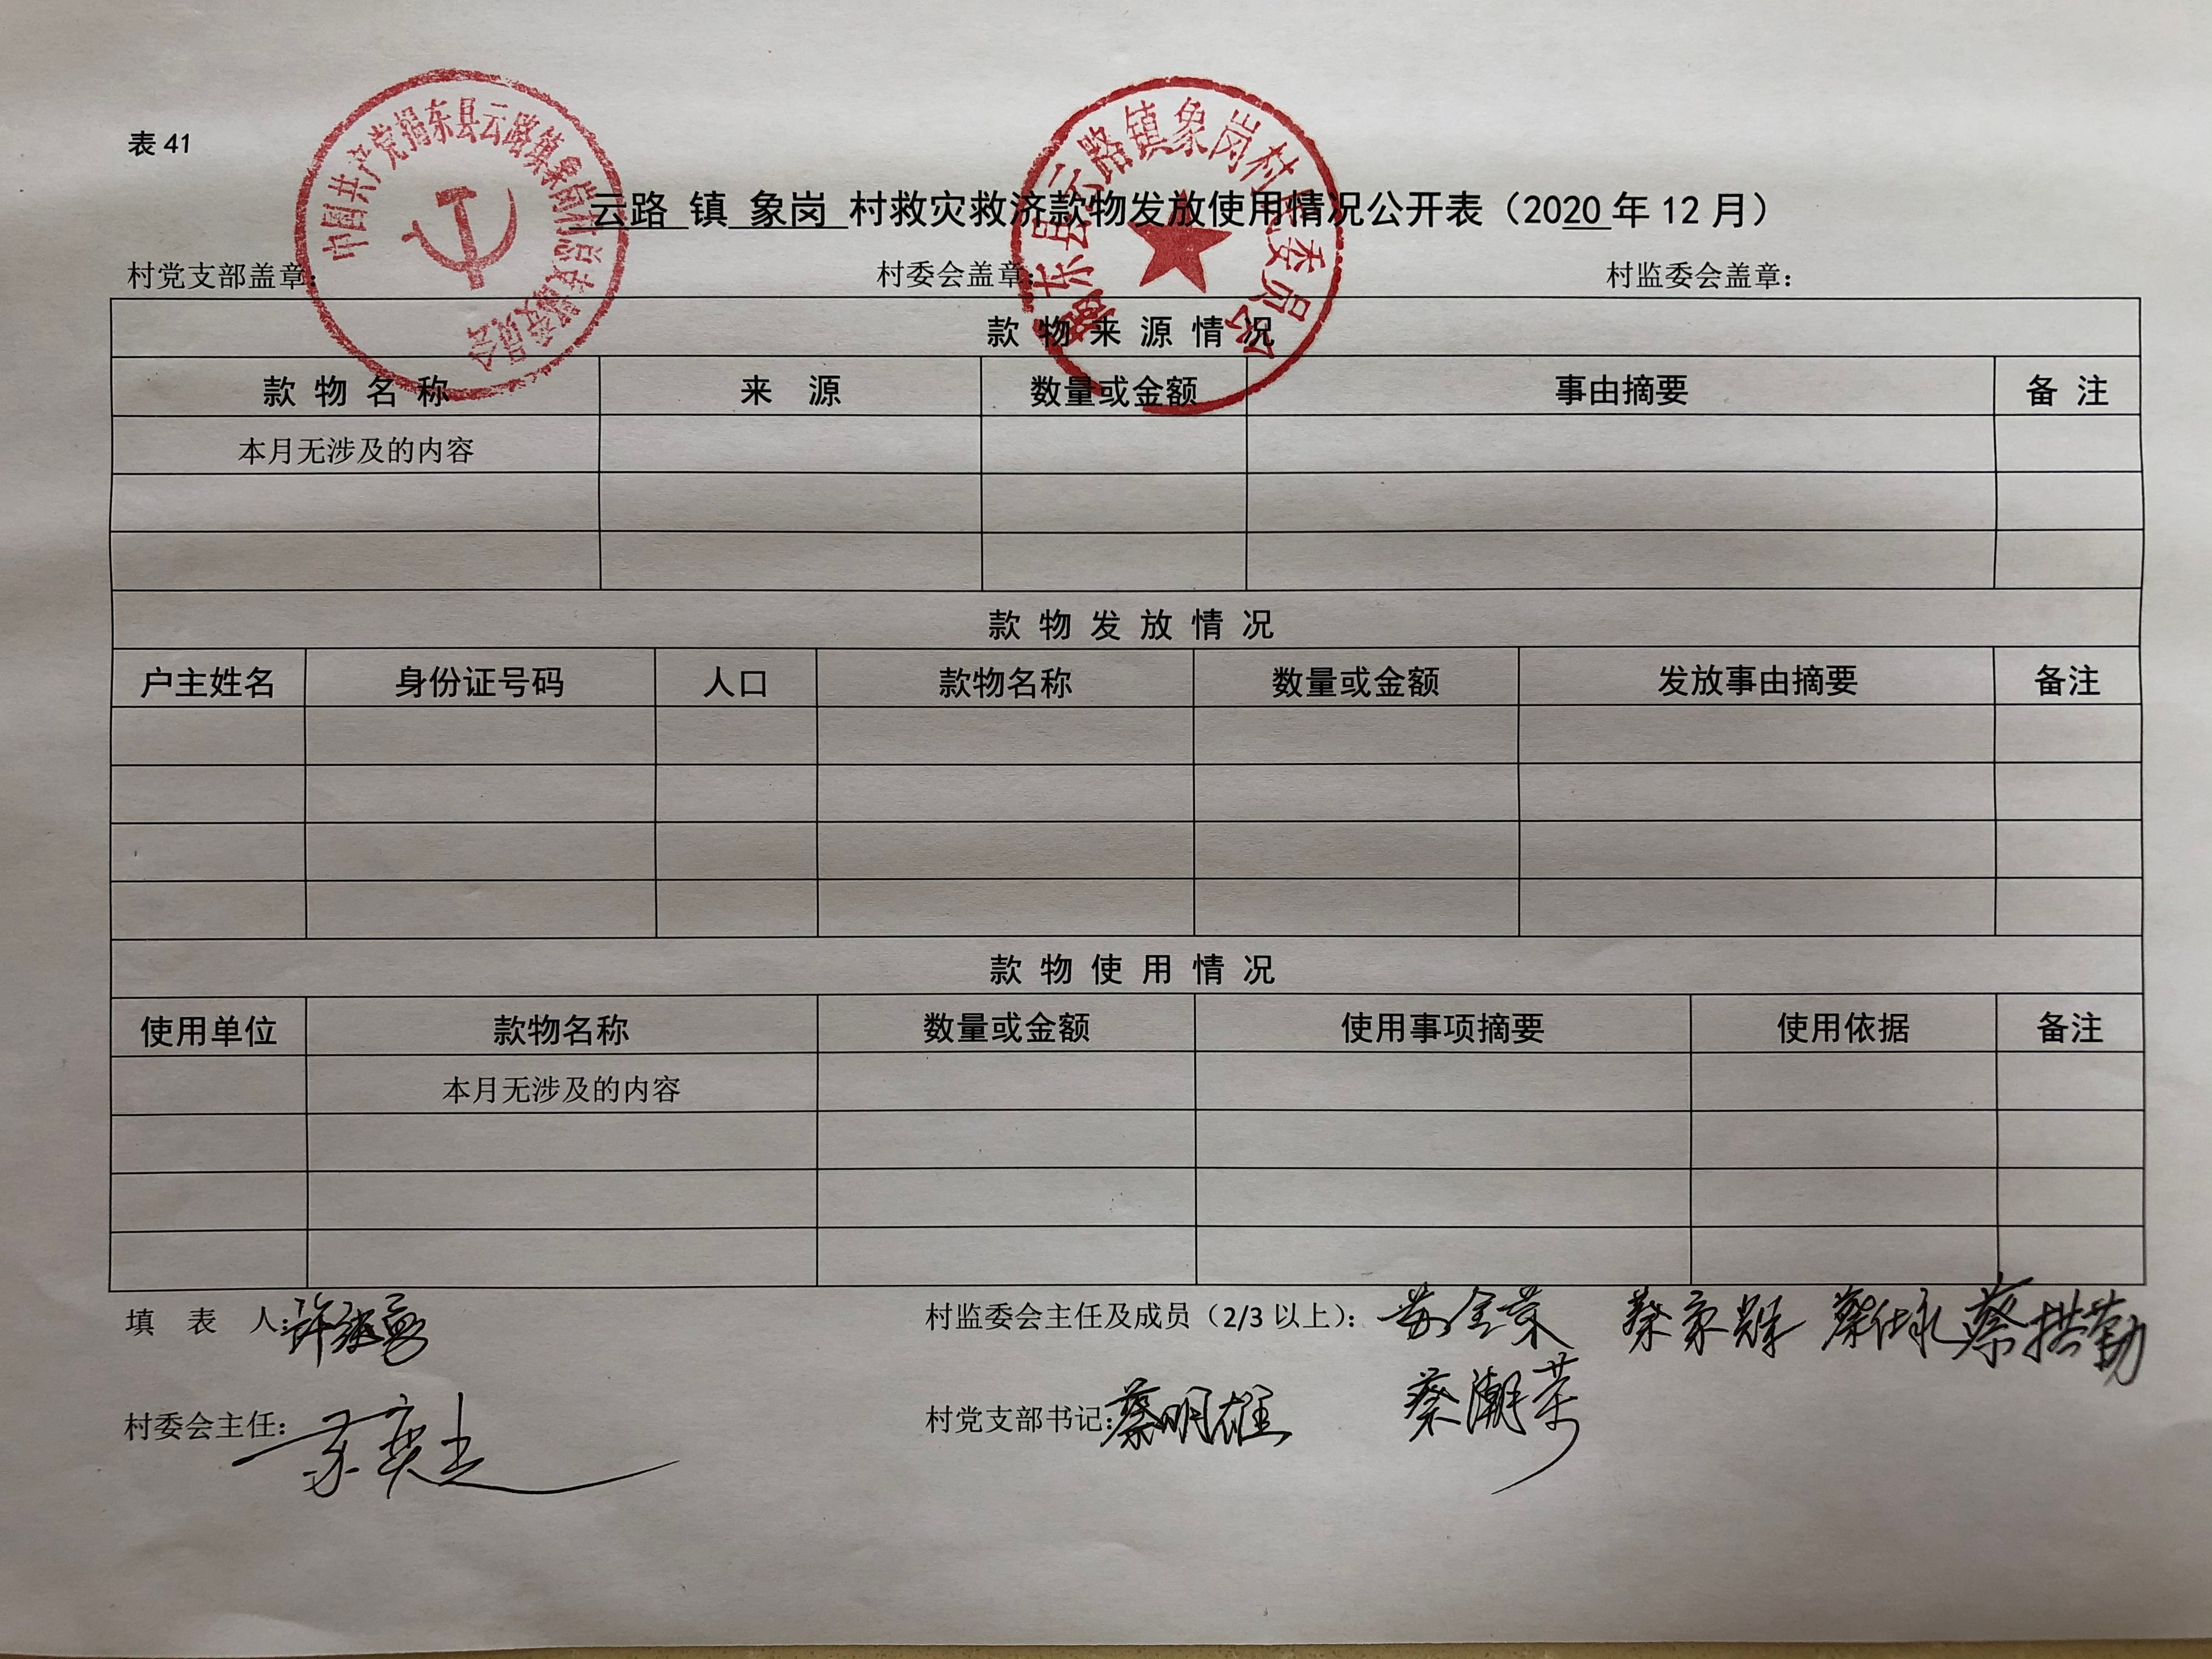 表 41
中国共产党揭东县云路镇象岗村总支部委员会
揭东县云路镇象岗村民委员会
云路 镇 象岗 村救灾救济款物发放使用情况公开表（2020 年 12 月）
村党支部盖章： 村委会盖章： 村监委会盖章：
款 物 来 源 情 况
款 物 名 称 来 源 数量或金额 事由摘要 备 注
本月无涉及的内容
款 物 发 放 情 况
户主姓名 身份证号码 人口 款物名称 数量或金额 发放事由摘要 备注
款 物 使 用 情 况
使用单位 款物名称 数量或金额 使用事项摘要 使用依据 备注
本月无涉及的内容
填 表 人： 村监委会主任及成员（2/3 以上）： 蔡拱勤
村委会主任： 村党支部书记：蔡明雄 蔡潮荣